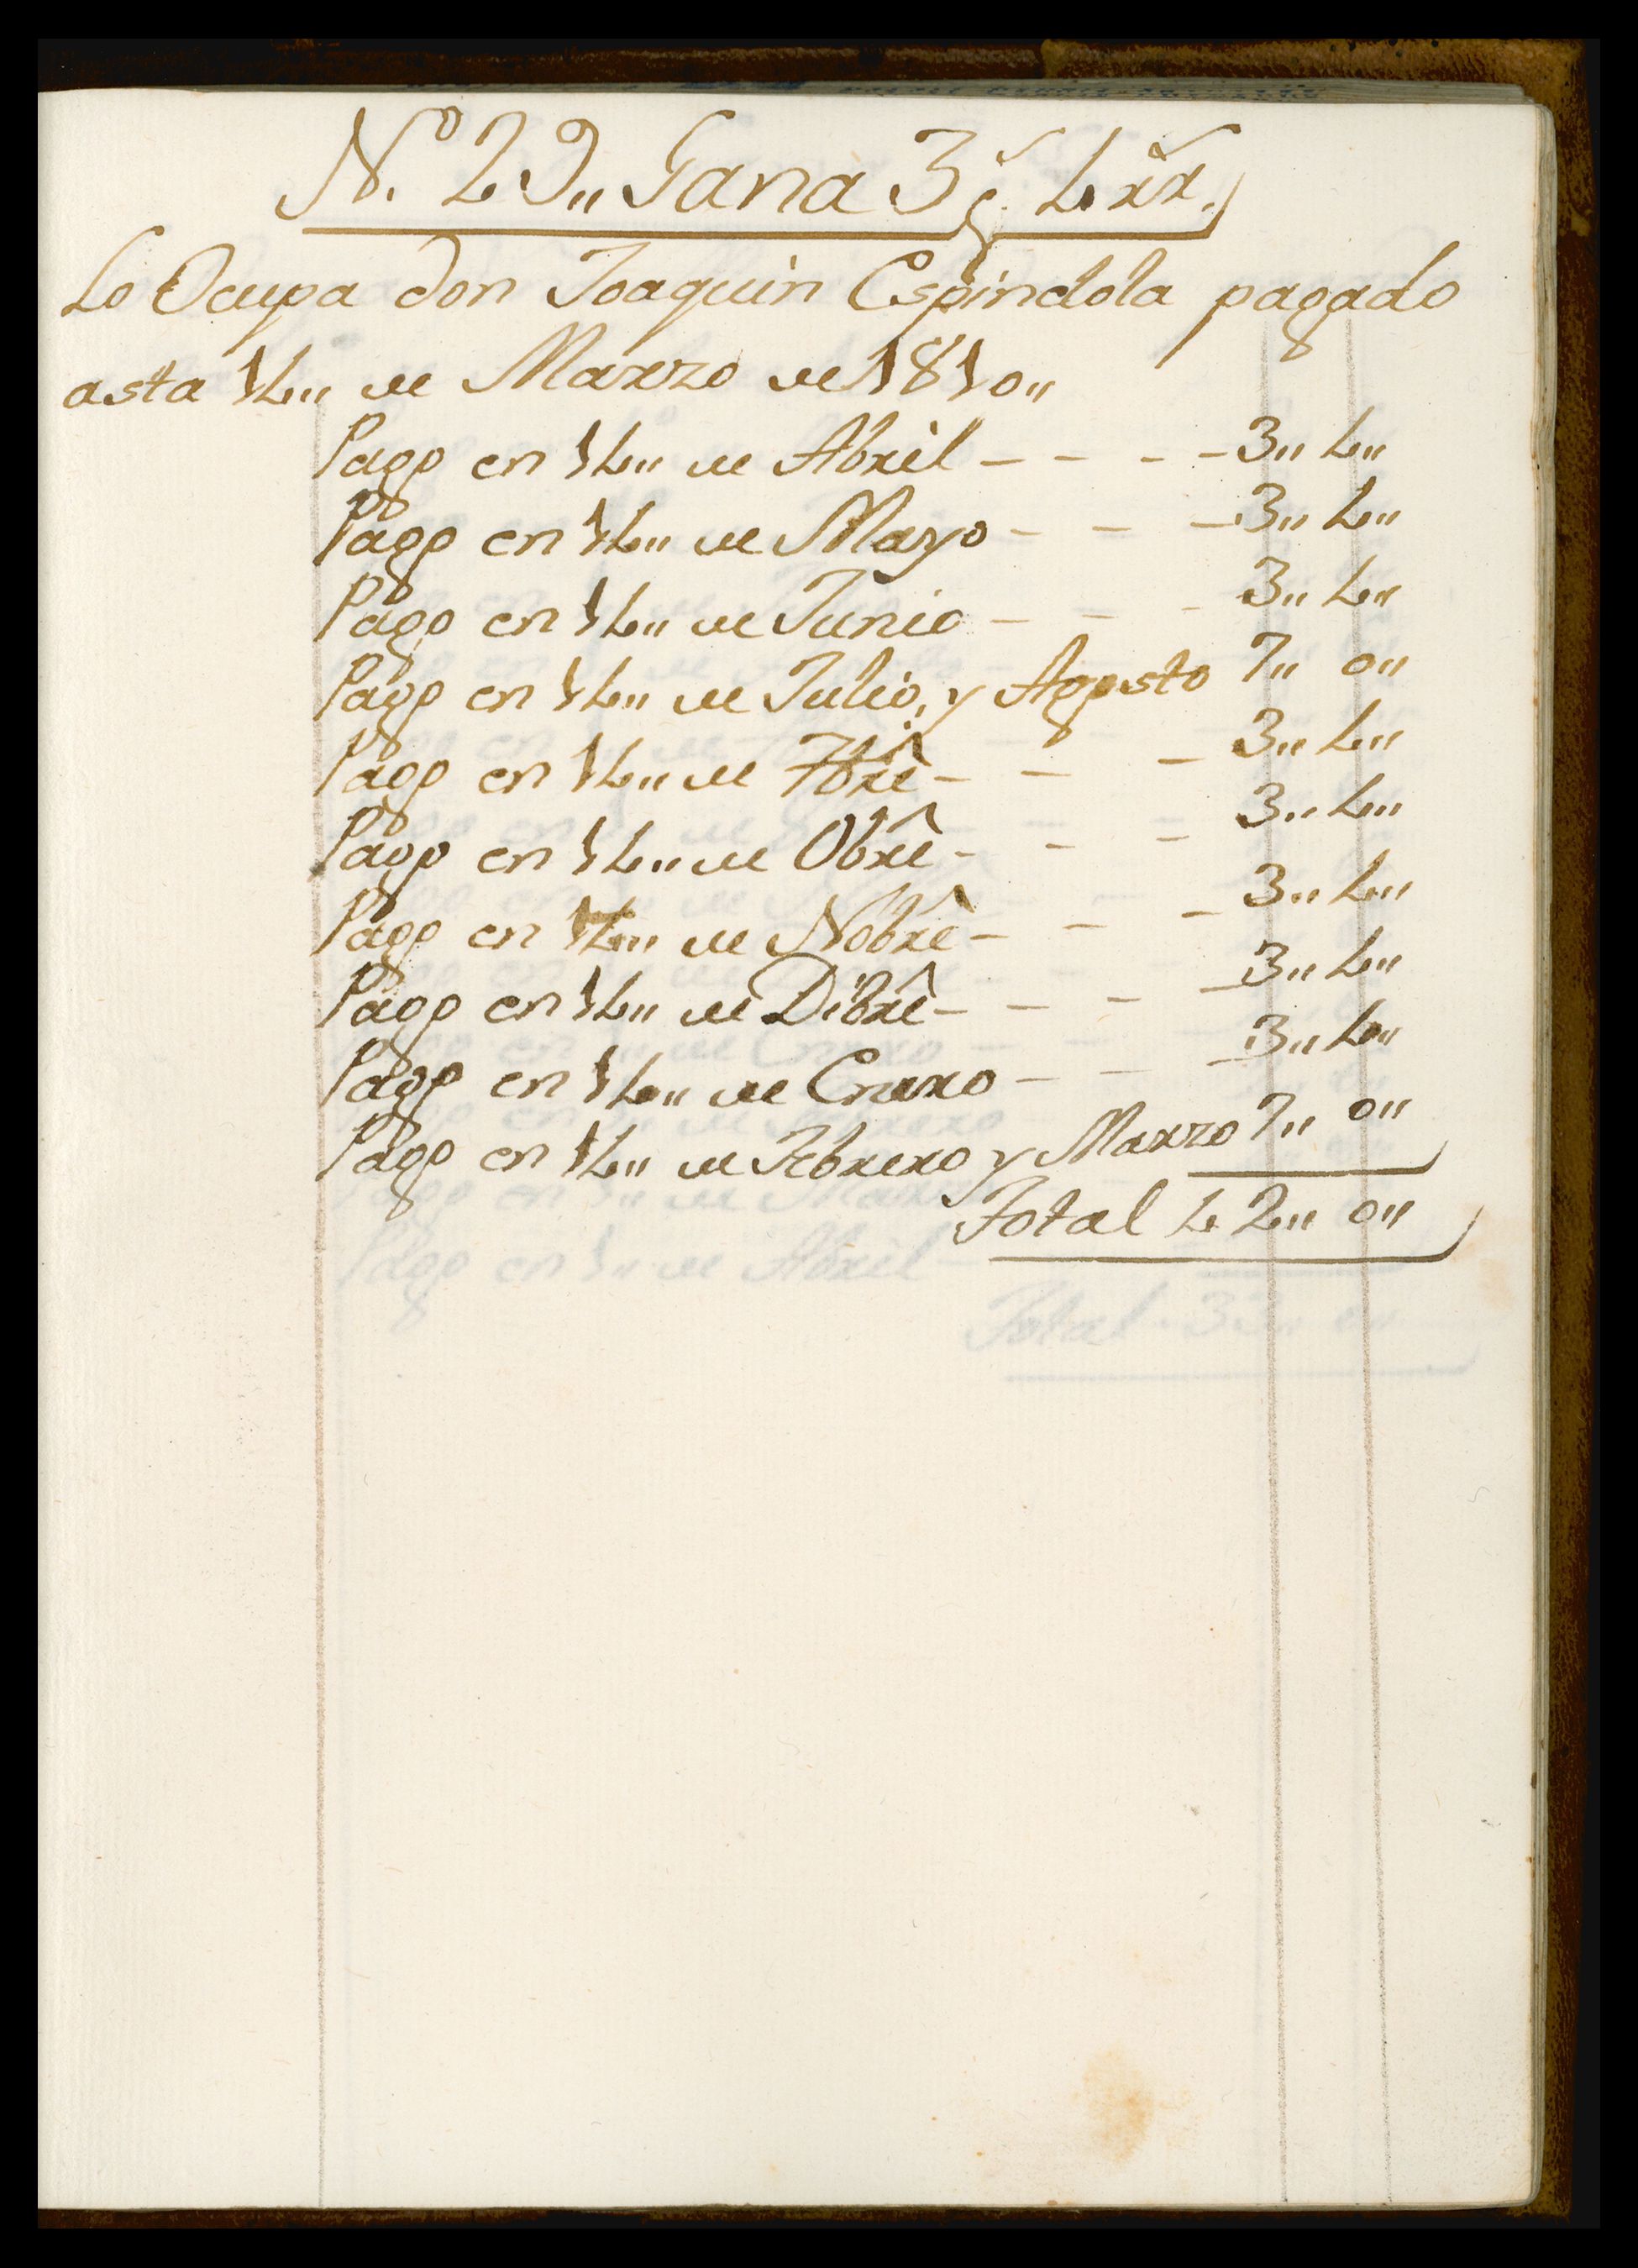 N.º 29,, Gana 3 p.ˢ 4 rr.ˢ
Lo Ocupa don Joaquin Espindola pagado
asta 14,, de Marzo de 1810,,
Pago en 14,, de Abril - - - - 3,, 4,,
Pago en 14,, de Mayo - - - 3,, 4,,
Pago en 14,, de Junio - - - 3,, 4,,
Pago en 14,, de Julio, y Agosto 7,, 0,,
Pago en 14,, de 7brê - - - 3,, 4,,
Pago en 14,, de Obrê - - - 3,, 4,,
Pago en 14,, de Nobrê - - - 3,, 4,,
Pago en 14,, de Dibrê - - - - 3,, 4,,
Pago en 14,, de Enero - - - 3,, 4,,
Pago en 14,, de Febrero y Marzo 7,, 0,,
Total 42,, 0,,